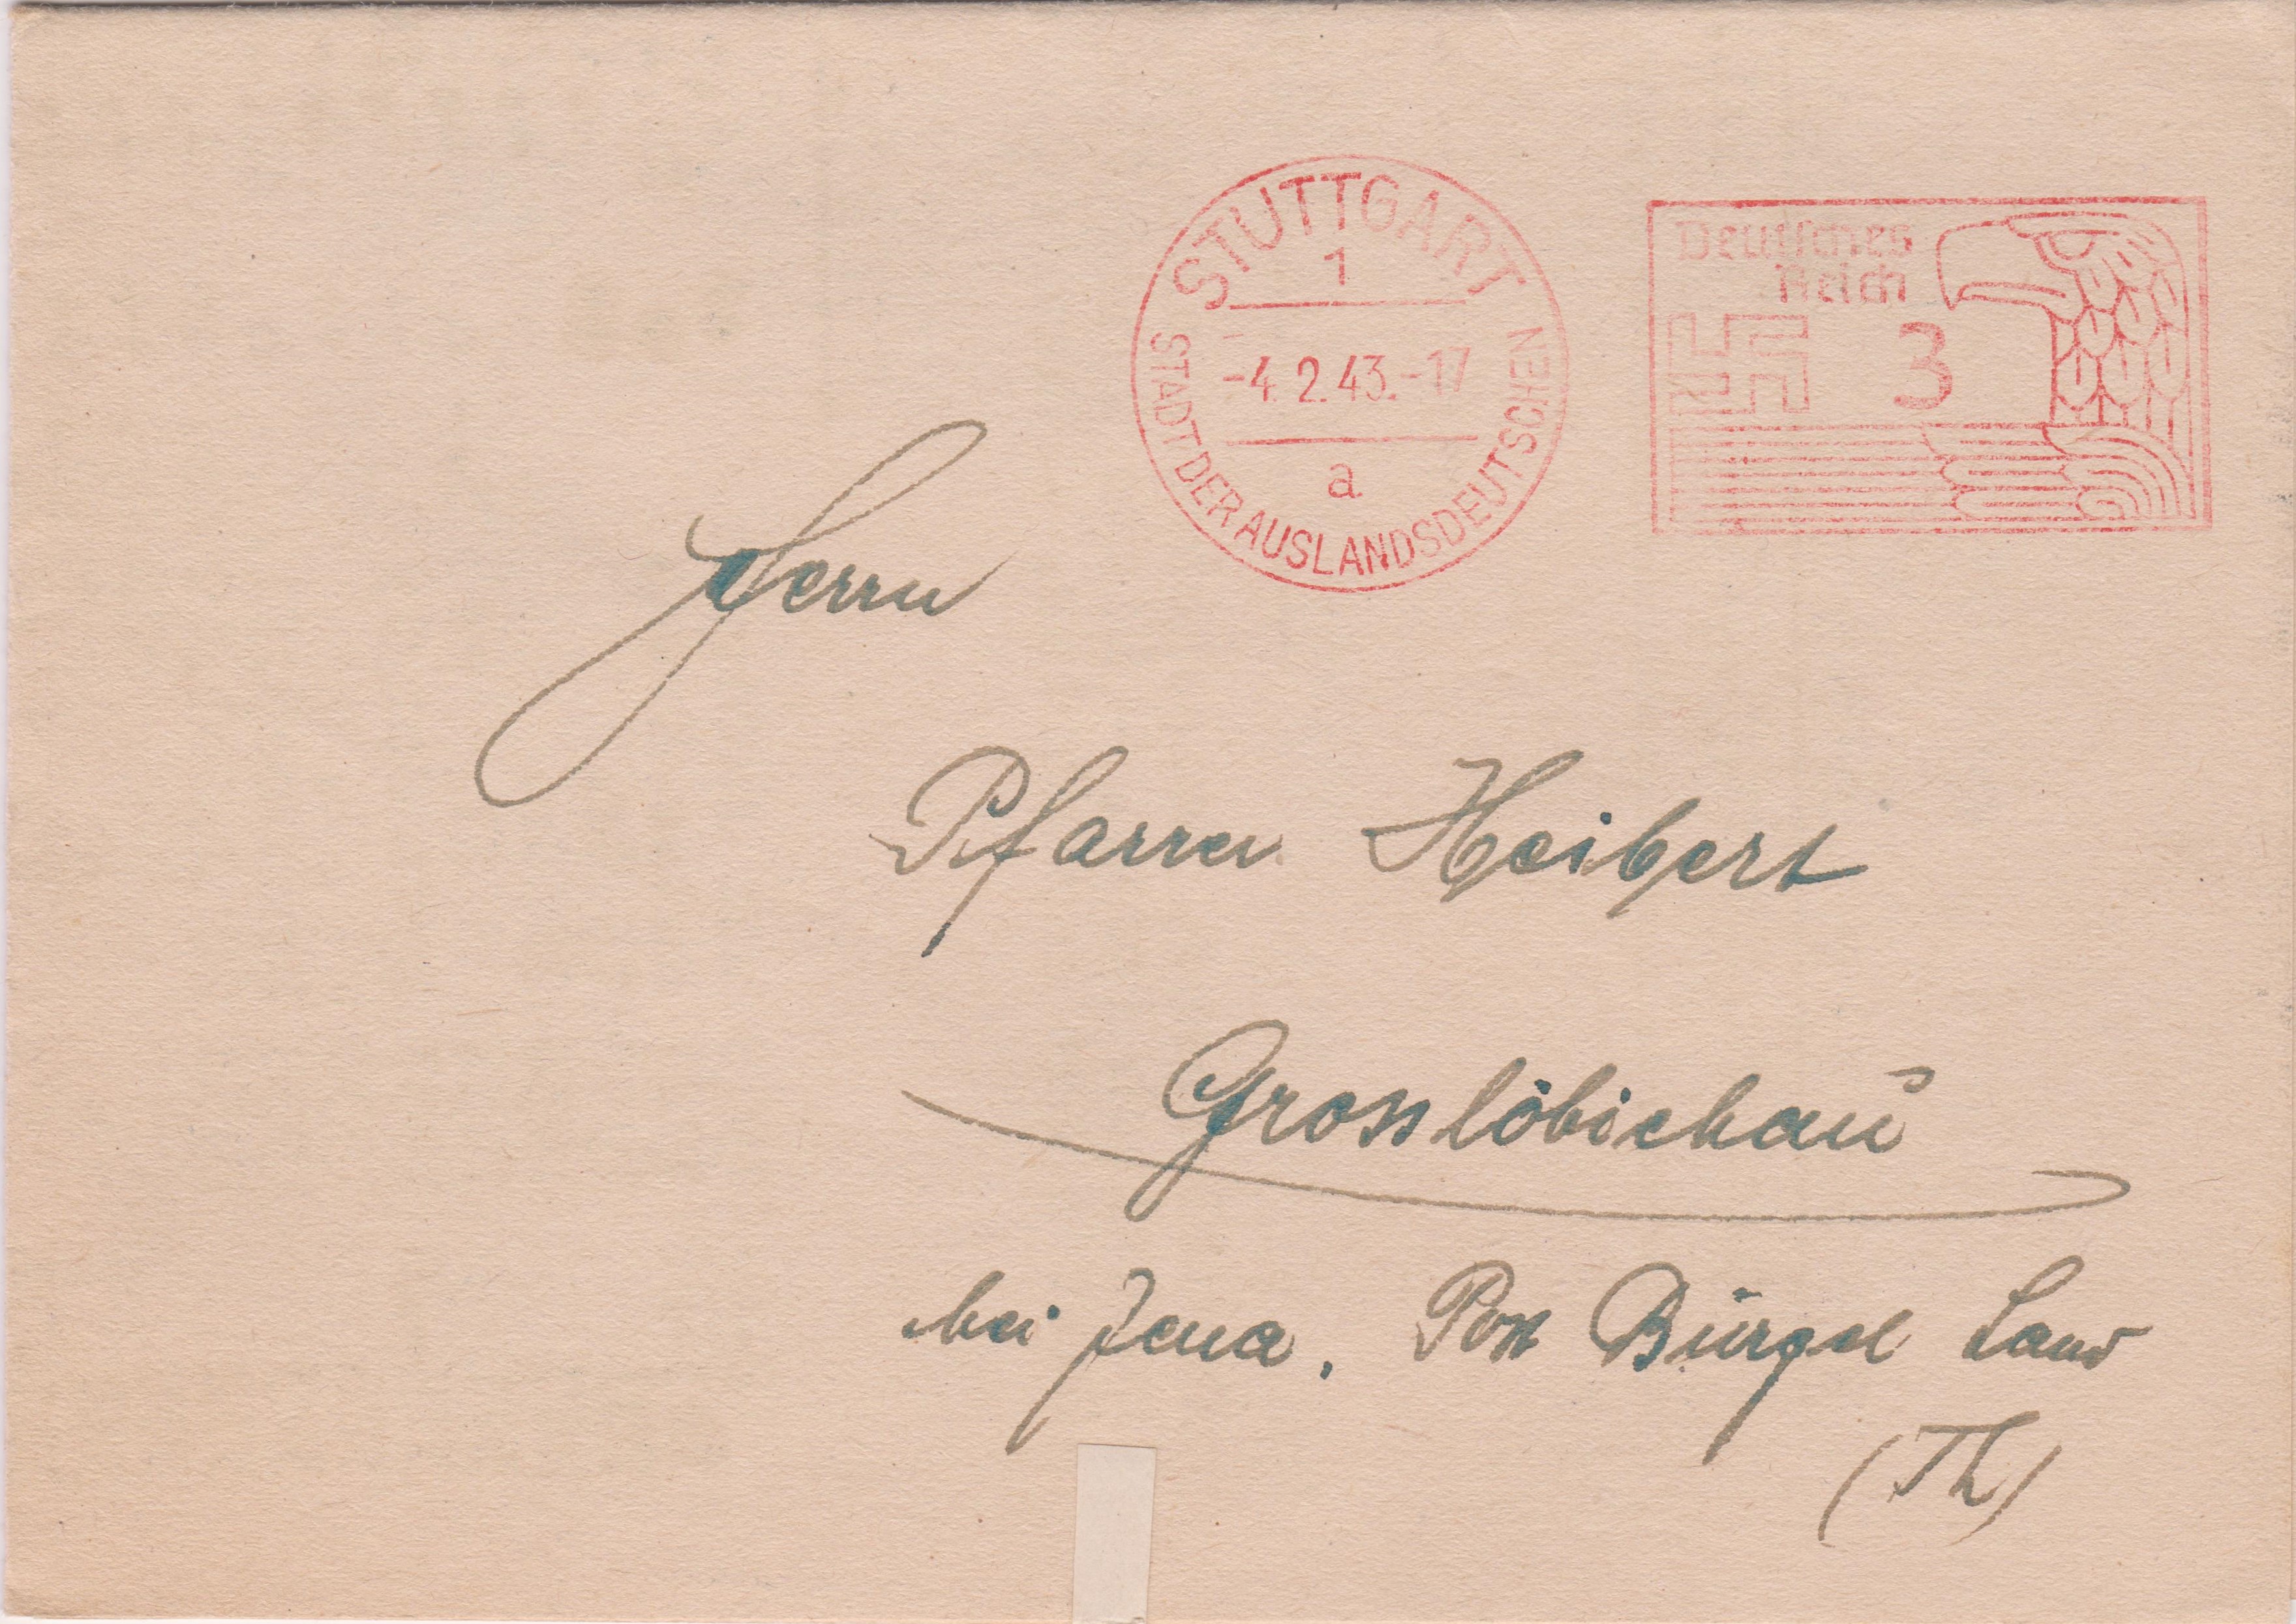 STUTTGART
1
-4.2.43.-17
a
STADT DER AUSLANDSDEUTSCHEN
Deutsches
Reich
3
Herrn
Pfarrer Heibert
Grosslöbichau
bei Jena. Post Bürgel Land
(Th)